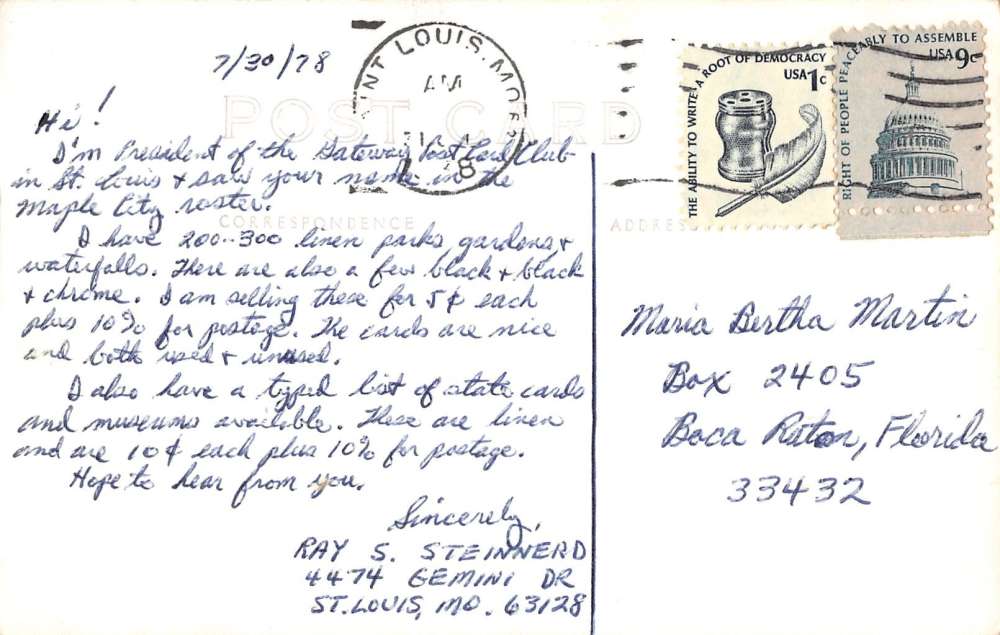 7/30/78
SAINT LOUIS, MO
AM
THE ABILITY TO WRITE A ROOT OF DEMOCRACY
USA 1c
RIGHT OF PEOPLE PEACEABLY TO ASSEMBLE
USA 9c
POST CARD
CORRESPONDENCE
ADDRESS
Hi!
I'm President of the Gateway Post Card Club
in St. Louis + saw your name in the
Maple City roster.
I have 200-300 linen parks, gardens, +
waterfalls. There are also a few black + black
+ chrome. I am selling these for 5¢ each
plus 10% for postage. The cards are nice
and both used + unused.
I also have a typed list of state cards
and museums available. These are linen
and are 10¢ each plus 10% for postage.
Hope to hear from you.
Sincerely,
RAY S. STEINNERD
4474 GEMINI DR
ST. LOUIS, MO. 63128
Maria Bertha Martin
Box 2405
Boca Raton, Florida
33432